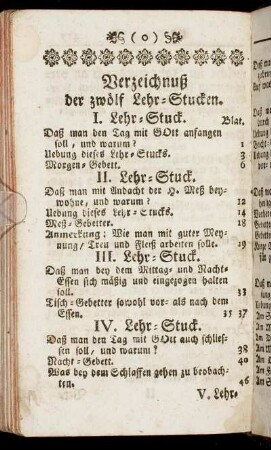 ( o )
Verzeichnuß
der zwölf Lehr-Stucken.
I. Lehr-Stuck. Blat.
Daß man den Tag mit GOtt anfangen
soll, und warum? 1
Uebung dieses Lehr-Stucks. 3
Morgen-Gebett. 6
II. Lehr-Stuck.
Daß man mit Andacht der H. Meß bey-
wohne, und warum? 12
Uebung dieses Lehr-Stucks. 14
Meß-Gebetter. 18
Anmerckung: Wie man mit guter Mey-
nung/ Treu und Fleiß arbeiten solle. 29
III. Lehr-Stuck.
Daß man bey dem Mittag- und Nacht-
Essen sich mäßig und eingezogen halten
soll. 33
Tisch-Gebetter sowohl vor- als nach dem
Essen. 35 37
IV. Lehr-Stuck.
Daß man den Tag mit GOtt auch schlies-
sen soll, und warum? 38
Nacht-Gebett. 40
Was bey dem Schlaffen gehen zu beobach-
ten. 46
V. Lehr-